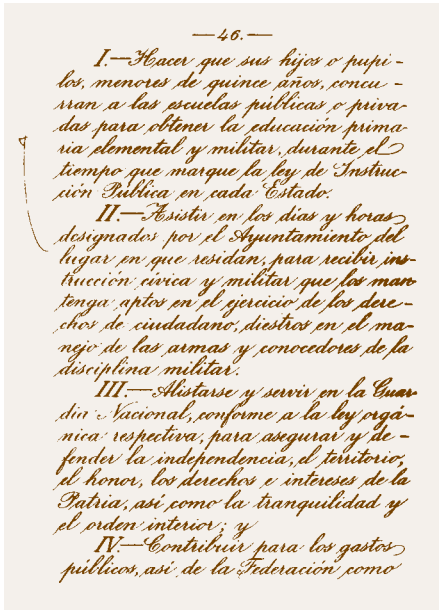 —46.—
I.—Hacer que sus hijos o pupi-
los, menores de quince años, concu-
rran a las escuelas públicas o priva-
das para obtener la educación prima-
ria elemental y militar, durante el
tiempo que marque la ley de Instruc-
ción Pública en cada Estado.
II.—Asistir en los dias y horas
designados por el Ayuntamiento del
lugar en que residan, para recibir ins-
trucción civica y militar que los man-
tenga aptos en el ejercicio de los dere-
chos de ciudadano, diestros en el ma-
nejo de las armas y conocedores de la
disciplina militar.
III.—Alistarse y servir en la Guar-
dia Nacional, conforme a la ley orgá-
nica respectiva, para asegurar y de-
fender la independencia, el territorio,
el honor, los derechos e intereses de la
Patria, así como la tranquilidad y
el orden interior; y
IV.—Contribuir para los gastos
públicos, así de la Federación como